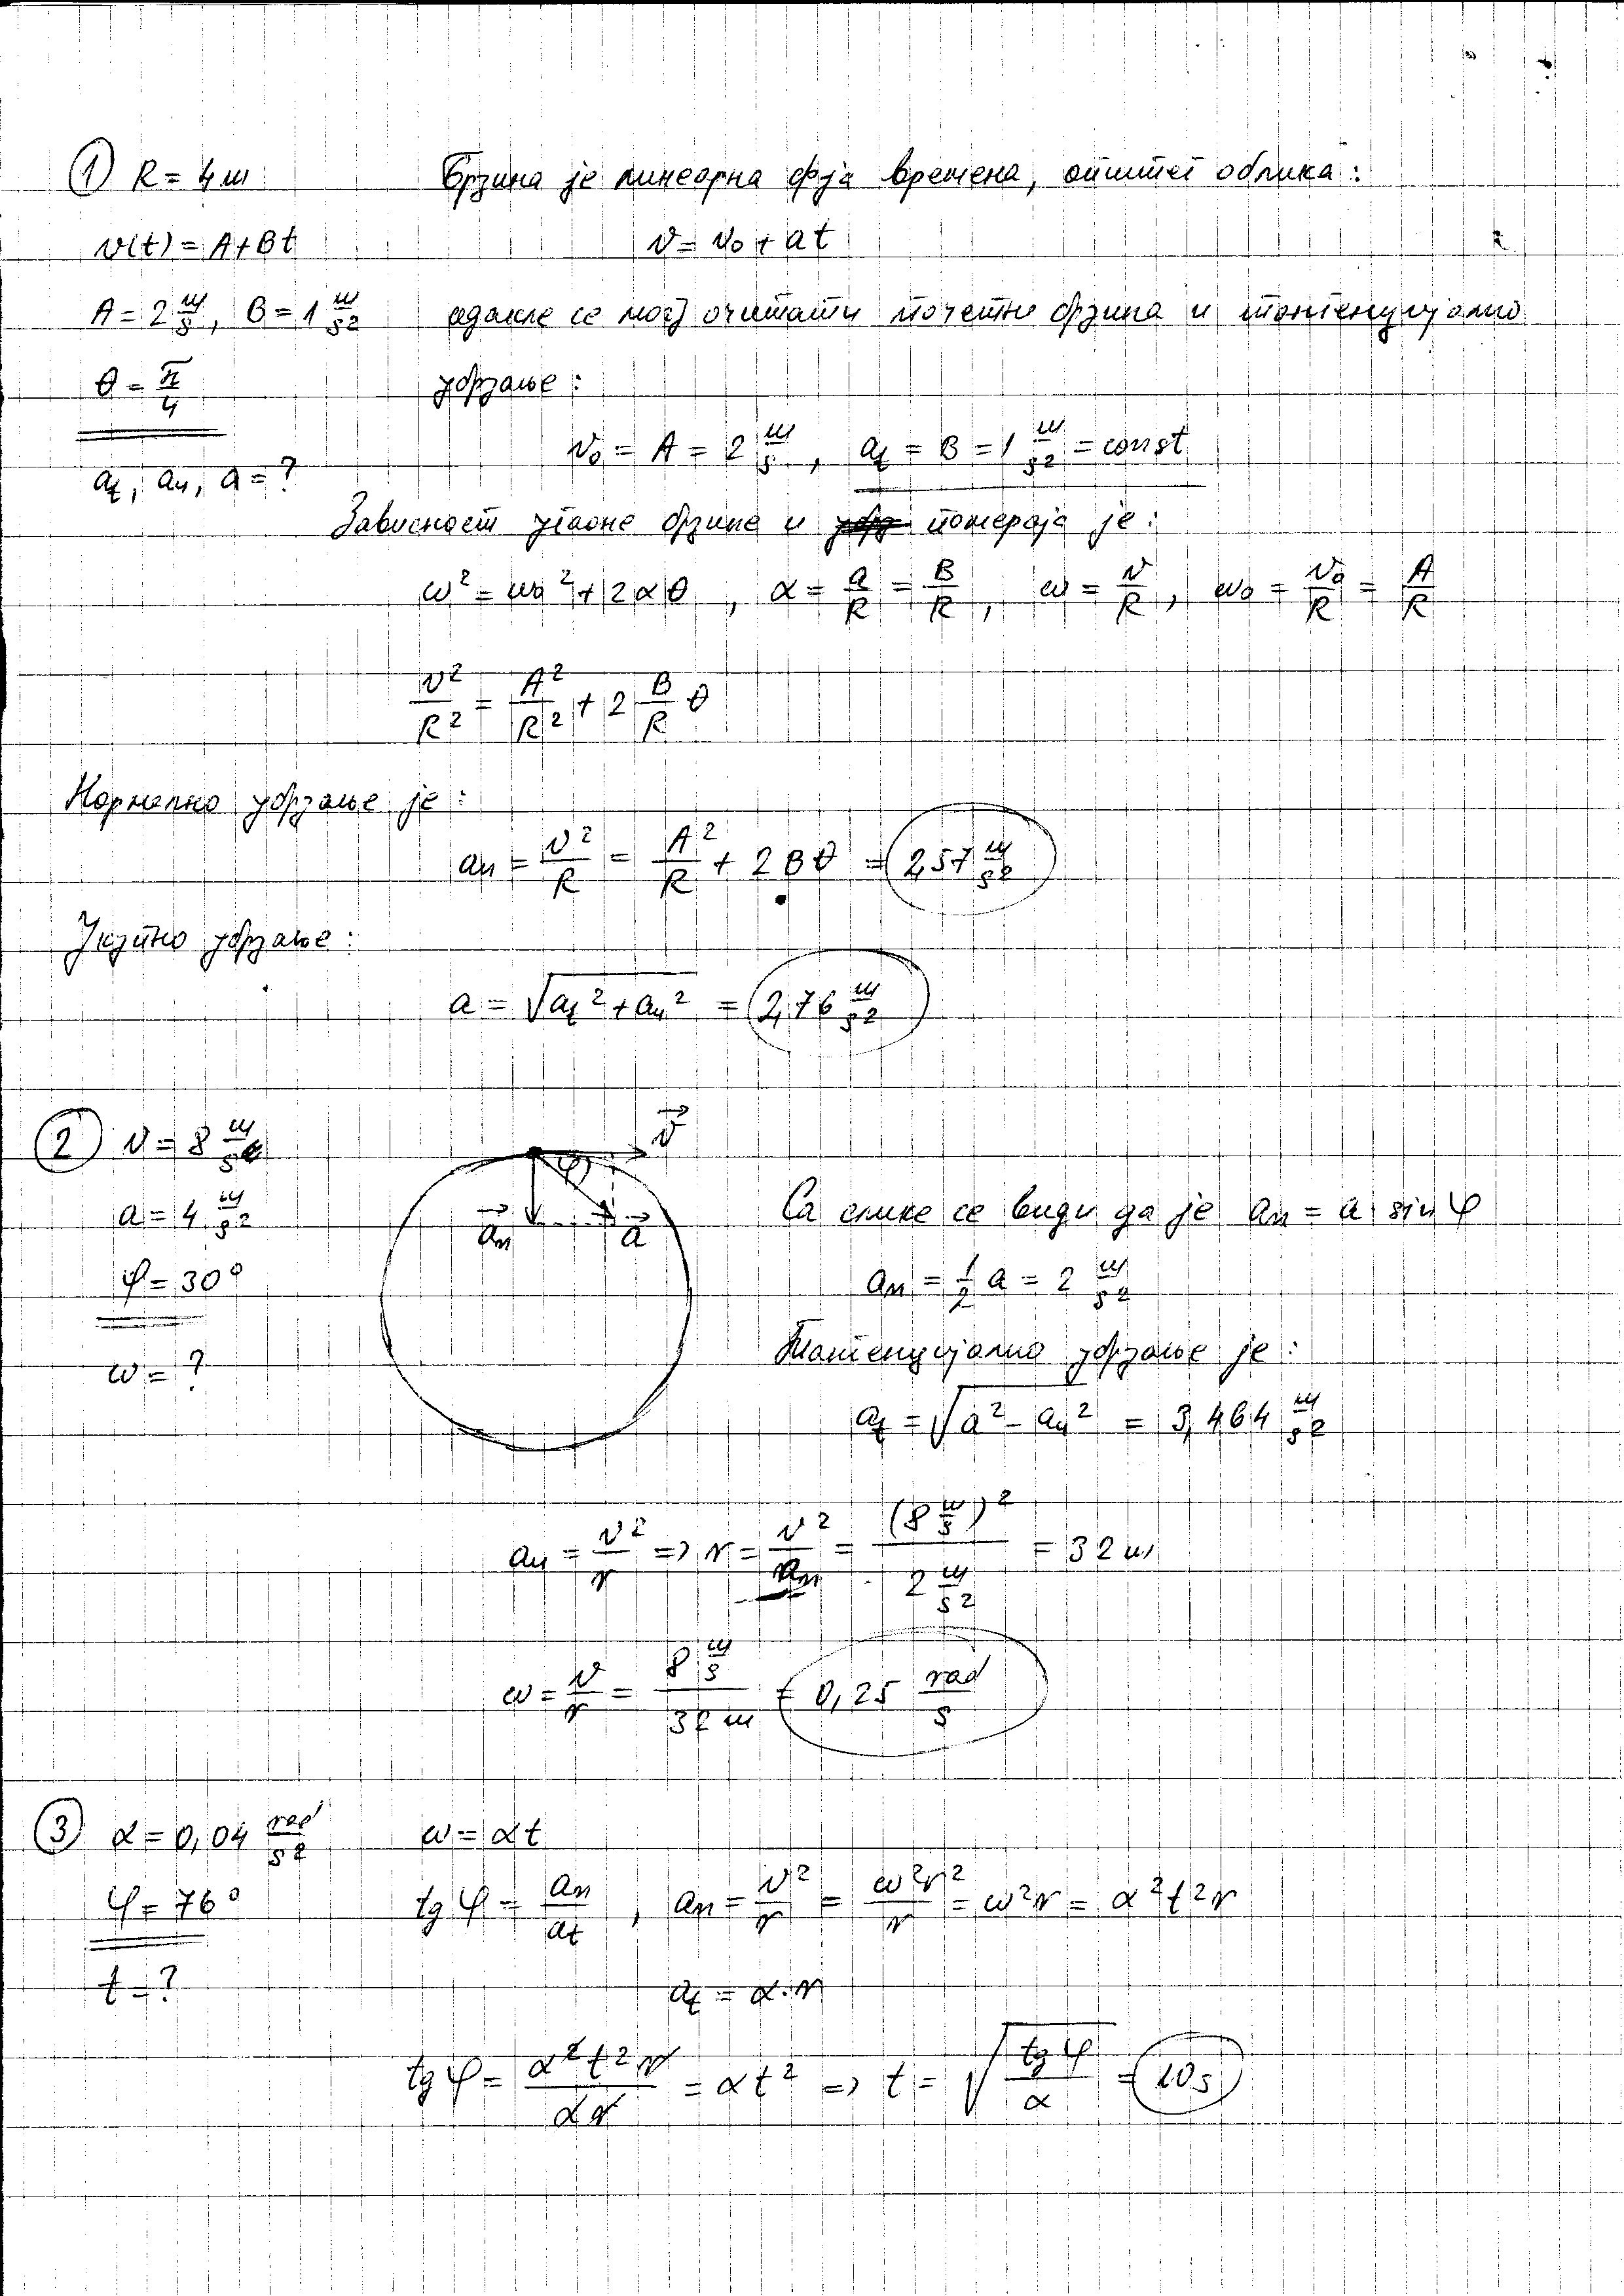 ① R = 4 m Брзина је линеарна ф-ја времена, општег облика:
v(t) = A + Bt v = v₀ + at
A = 2 m/s, B = 1 m/s² одакле се могу очитати почетна брзина и тангенцијално
θ = π/4 убрзање:
v₀ = A = 2 m/s, aₜ = B = 1 m/s² = const
aₜ, aₙ, a = ?
Зависност угаоне брзине и помераја је:
ω² = ω₀² + 2αθ, α = a/R = B/R, ω = v/R, ω₀ = v₀/R = A/R
v²/R² = A²/R² + 2 B/R θ
Нормално убрзање је:
aₙ = v²/R = A²/R + 2Bθ = 2,57 m/s²
Укупно убрзање:
a = √(aₜ² + aₙ²) = 2,76 m/s²
② v = 8 m/s v⃗
φ
a = 4 m/s² a⃗ₙ a⃗ Са слике се види да је aₙ = a · sin φ
φ = 30° aₙ = 1/2 a = 2 m/s²
ω = ? Тангенцијално убрзање је:
aₜ = √(a² - aₙ²) = 3,464 m/s²
aₙ = v²/r => r = v²/aₙ = (8 m/s)²/(2 m/s²) = 32 m
ω = v/r = (8 m/s)/(32 m) = 0,25 rad/s
③ α = 0,04 rad/s² ω = αt
φ = 76° tg φ = aₙ/aₜ, aₙ = v²/r = ω²r²/r = ω²r = α²t²r
t = ? aₜ = α · r
tg φ = α²t²r/(αr) = αt² => t = √(tg φ/α) = 10 s